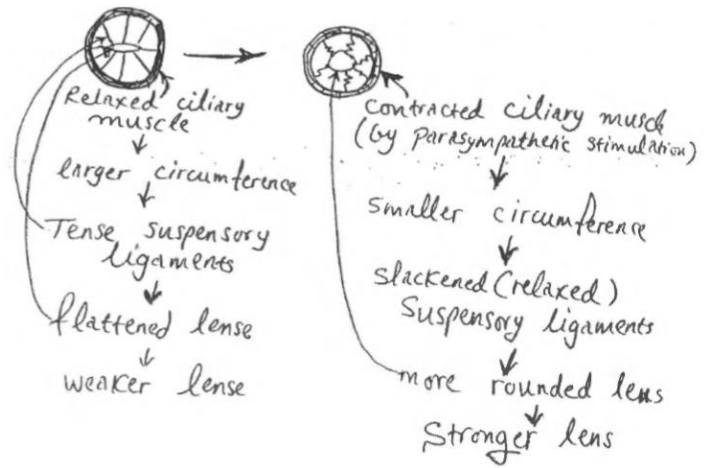 Relaxed ciliary
muscle
larger circumference
Tense suspensory
ligaments
flattened lense
weaker lense
contracted ciliary muscle
(by parasympathetic stimulation)
smaller circumference
slackened (relaxed)
Suspensory ligaments
more rounded lens
Stronger lens